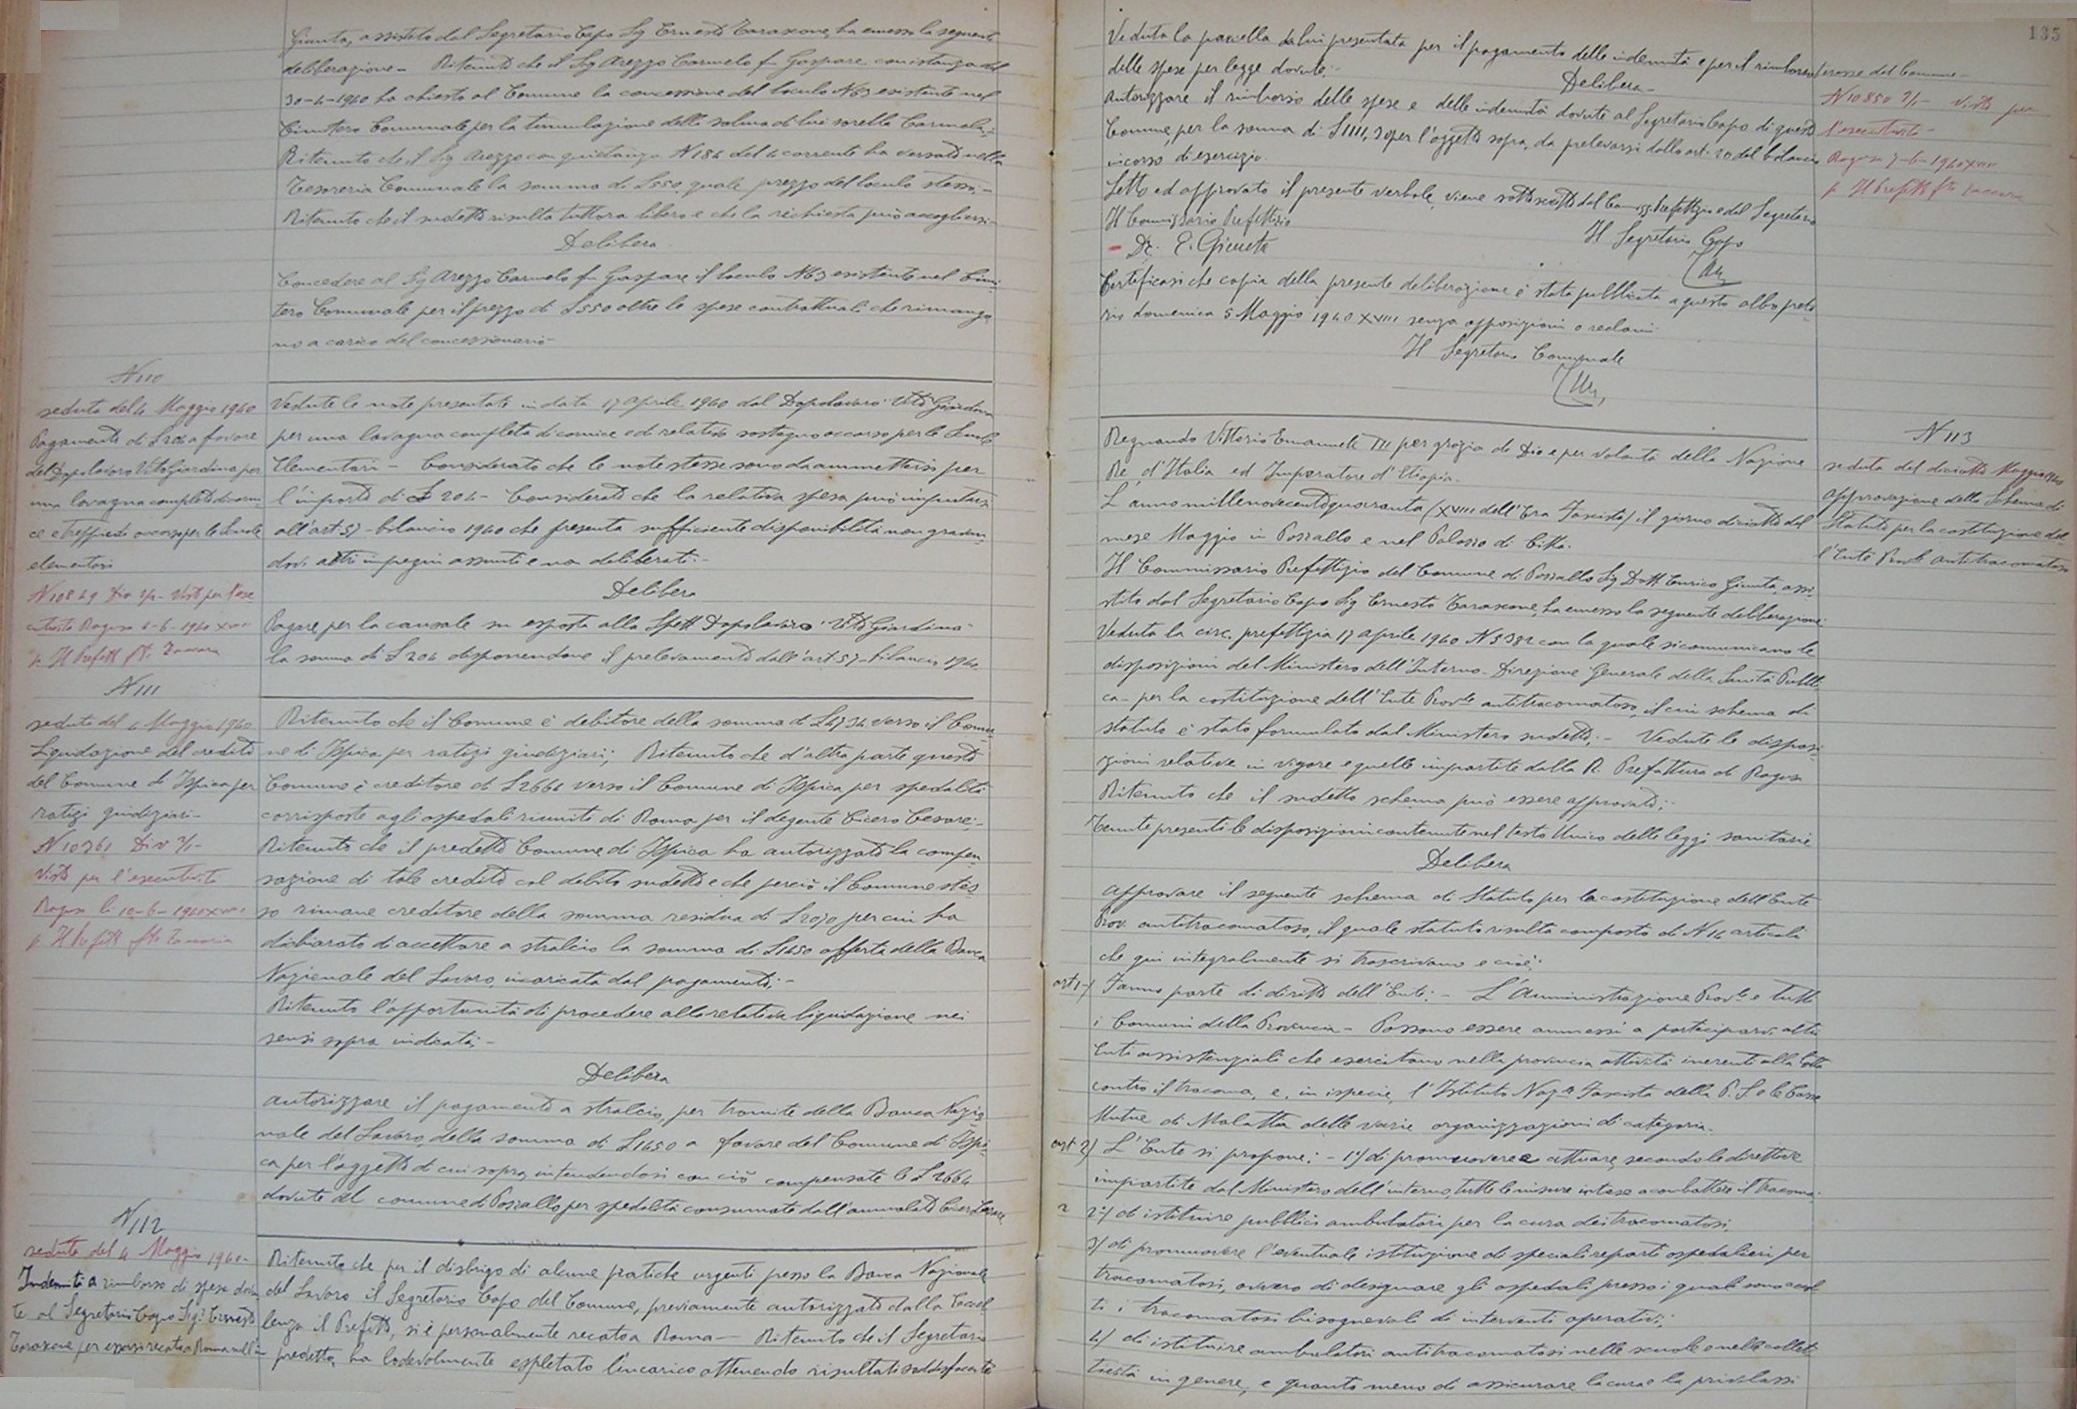 Giunta, assistito dal Segretario Capo Sig Ernesto Tarascone, ha emesso la seguente
deliberazione - Ritenuto che il Sig Arezzo Carmelo fu Gaspare con istanza del
30-4-1940 ha chiesto al Comune la concessione del loculo N63 esistente nel
Cimitero Comunale per la tumulazione della salma di lui sorella Carmela;-
Ritenuto che il Sig Arezzo con quietanza N184 del 4 corrente ha versato nella
Tesoreria Comunale la somma di £550, quale prezzo del loculo stesso;-
Ritenuto che il sudetto risulta tuttora libero e che la richiesta può accogliersi-
Delibera
Concedere al Sig Arezzo Carmelo fu Gaspare il loculo N63 esistente nel Cimi-
tero Comunale per il prezzo di £550 oltre le spese contrattuali che rimango-
no a carico del concessionario-
N110
seduta del 4 Maggio 1940
Pagamento di £204 a favore
del Dopolavoro Vito Giardina per
una lavagna completa di corni-
ce e treppiedi occorso per le Scuole
elementari
N10849 Div 2/1- Visto per l'ese
cutività Ragusa 6-6-1940 XVIII
p. Il Prefetto fto
Vedute le note presentate in data 17 aprile 1940 dal Dopolavoro Vito Giardina
per una lavagna completa di cornice ed relativo sostegno occorso per le Scuole
Elementari - Considerato che le note stesse sono da ammettersi per
l'importo di £ 204- Considerato che la relativa spesa può imputarsi
all'art 57- bilancio 1940 che presenta sufficiente disponibilità non gravan-
dovi altri impegni assunti e non deliberati:-
Delibera
Pagare, per la causale su esposta alla Spett Dopolavoro "Vito Giardina"
la somma di £204 disponendone il prelevamento dall'art 57- bilancio 1940.
N111
seduta del 4 Maggio 1940
Liquidazione del credito
del Comune di Ispica per
ratizi giudiziari-
N10261 Div 2/1-
Visto per l'esecutività
Ragusa li 10-6-1940 XVIII
p. Il Prefetto fto
Ritenuto che il Comune è debitore della somma di £4734 verso il Comu-
ne di Ispica per ratizi giudiziari; Ritenuto che d'altra parte questo
Comune è creditore di £2664 verso il Comune di Ispica per spedalità
corrisposte agli ospedali riuniti di Roma per il degente Cicero Cesare;-
Ritenuto che il predetto Comune di Ispica ha autorizzato la compen-
sazione di tale credito col debito sudetto e che perciò il Comune stes
so rimane creditore della somma residua di £2070 per cui ha
dichiarato di accettare a stralcio la somma di £1450 offerta della Banca
Nazionale del Lavoro, incaricata dal pagamento;-
Ritenuto l'opportunità di procedere alla relativa liquidazione nei
sensi sopra indicati;-
Delibera
autorizzare il pagamento a stralcio, per tramite della Banca Nazio-
nale del Lavoro della somma di £1450 a favore del Comune di Ispi-
ca per l'oggetto di cui sopra, intendendosi con ciò compensate le £ 2664
dovute dal comune di Pozzallo per spedalità consumate dall'ammalato Cicero Cesare
N112
seduta del 4 Maggio 1940-
Indennità a rimborso di spese dovu-
te al Segretario Capo Sigr Ernesto
Tarascone per essersi recato a Roma nell'in
Ritenuto che per il disbrigo di alcune pratiche urgenti presso la Banca Nazionale
del Lavoro il Segretario Capo del Comune, previamente autorizzato dalla Eccel
lenza il Prefetto, si è personalmente recato a Roma- Ritenuto che il Segretario
predetto, ha lodevolmente espletato l'incarico ottenendo risultato soddisfacente
135
Veduta la parcella da lui presentata per il pagamento delle indennità e per il rimborso
delle spese per legge dovute;-
Delibera-
Autorizzare il rimborso delle spese e delle indennità dovute al Segretario Capo di questo
Comune, per la somma di £1111,30 per l'oggetto sopra, da prelevarsi dallo art. 20 del bilancio
in corso di esercizio.
Letto ed approvato il presente verbale, viene sottoscritto dal Commiss. Prefettizio e dal Segretario
Il Commissario Prefettizio
Il Segretario Capo
- Dr. E. Giunta
Certificasi che copia della presente deliberazione è stata pubblicata a questo albo preto-
rio domenica 5 Maggio 1940 XVIII senza opposizioni o reclami
Il Segretario Comunale
teresse del Comune-
N10850 2/1- Visto per
l'esecutività-
Ragusa 7-6-1940 XVIII
p. Il Prefetto fto
N 113
seduta del diciotto Maggio 1940
approvazione dello Schema di
Statuto per la costituzione del
l'Ente Prov.le antitracomatoso
Regnando Vittorio Emanuele III per grazia di Dio e per volontà della Nazione
Re d'Italia ed Imperatore d'Etiopia.
L'anno millenovecentoquaranta (XVIII dell'Era Fascista) il giorno diciotto del
mese Maggio in Pozzallo e nel Palazzo di Città.
Il Commissario Prefettizio del Comune di Pozzallo Sig Dott Enrico Giunta, assi-
stito dal Segretario Capo Sig Ernesto Tarascone, ha emesso la seguente deliberazione:
Veduta la circ. prefettizia 17 aprile 1940 N5382 con la quale si comunicano le
disposizioni del Ministero dell'Interno- Direzione Generale della Sanità Pubbli-
ca- per la costituzione dell'Ente Prov.le antitracomatoso, il cui schema di
statuto è stato formulato dal Ministero sudetto;- Vedute le disposi-
zioni relative in vigore e quelle impartite dalla R. Prefettura di Ragusa
Ritenuto che il sudetto schema può essere approvato;-
Tenute presenti le disposizioni contenute nel testo Unico delle leggi sanitarie
Delibera
approvare il seguente schema di Statuto per la costituzione dell'Ente
Prov. antitracomatoso, il quale statuto risulta composto di N14 articoli
che qui integralmente si trascrivono e cioè:
art 1-) Fanno parte di diritto dell'Ente:- L'Amministrazione Prov.le e tutti
i Comuni della Provincia- Possono essere ammessi a parteciparvi altri
Enti assistenziali che esercitano nella provincia attività inerenti alla lotta
contro il tracoma, e, in ispecie, l'Istituto Naz.le Fascista della P. S. e le Casse
Mutue di Malattia delle varie organizzazioni di categoria.
art 2) L'Ente si propone:- 1°) di promuovere e attuare, secondo le direttive
impartite dal Ministero dell'interno, tutte le misure intese a combattere il tracoma;
2°) di istituire pubblici ambulatori per la cura dei tracomatosi
3) di promuovere l'eventuale istituzione di speciali reparti ospedalieri per
tracomatosi, ovvero di designare gli ospedali presso i quali sono accol
ti i tracomatosi bisognevoli di interventi operativi;
4) di istituire ambulatori antitracomatosi nelle scuole e nelle collet-
tività in genere, e quanto meno di assicurare la cura e la profilassi